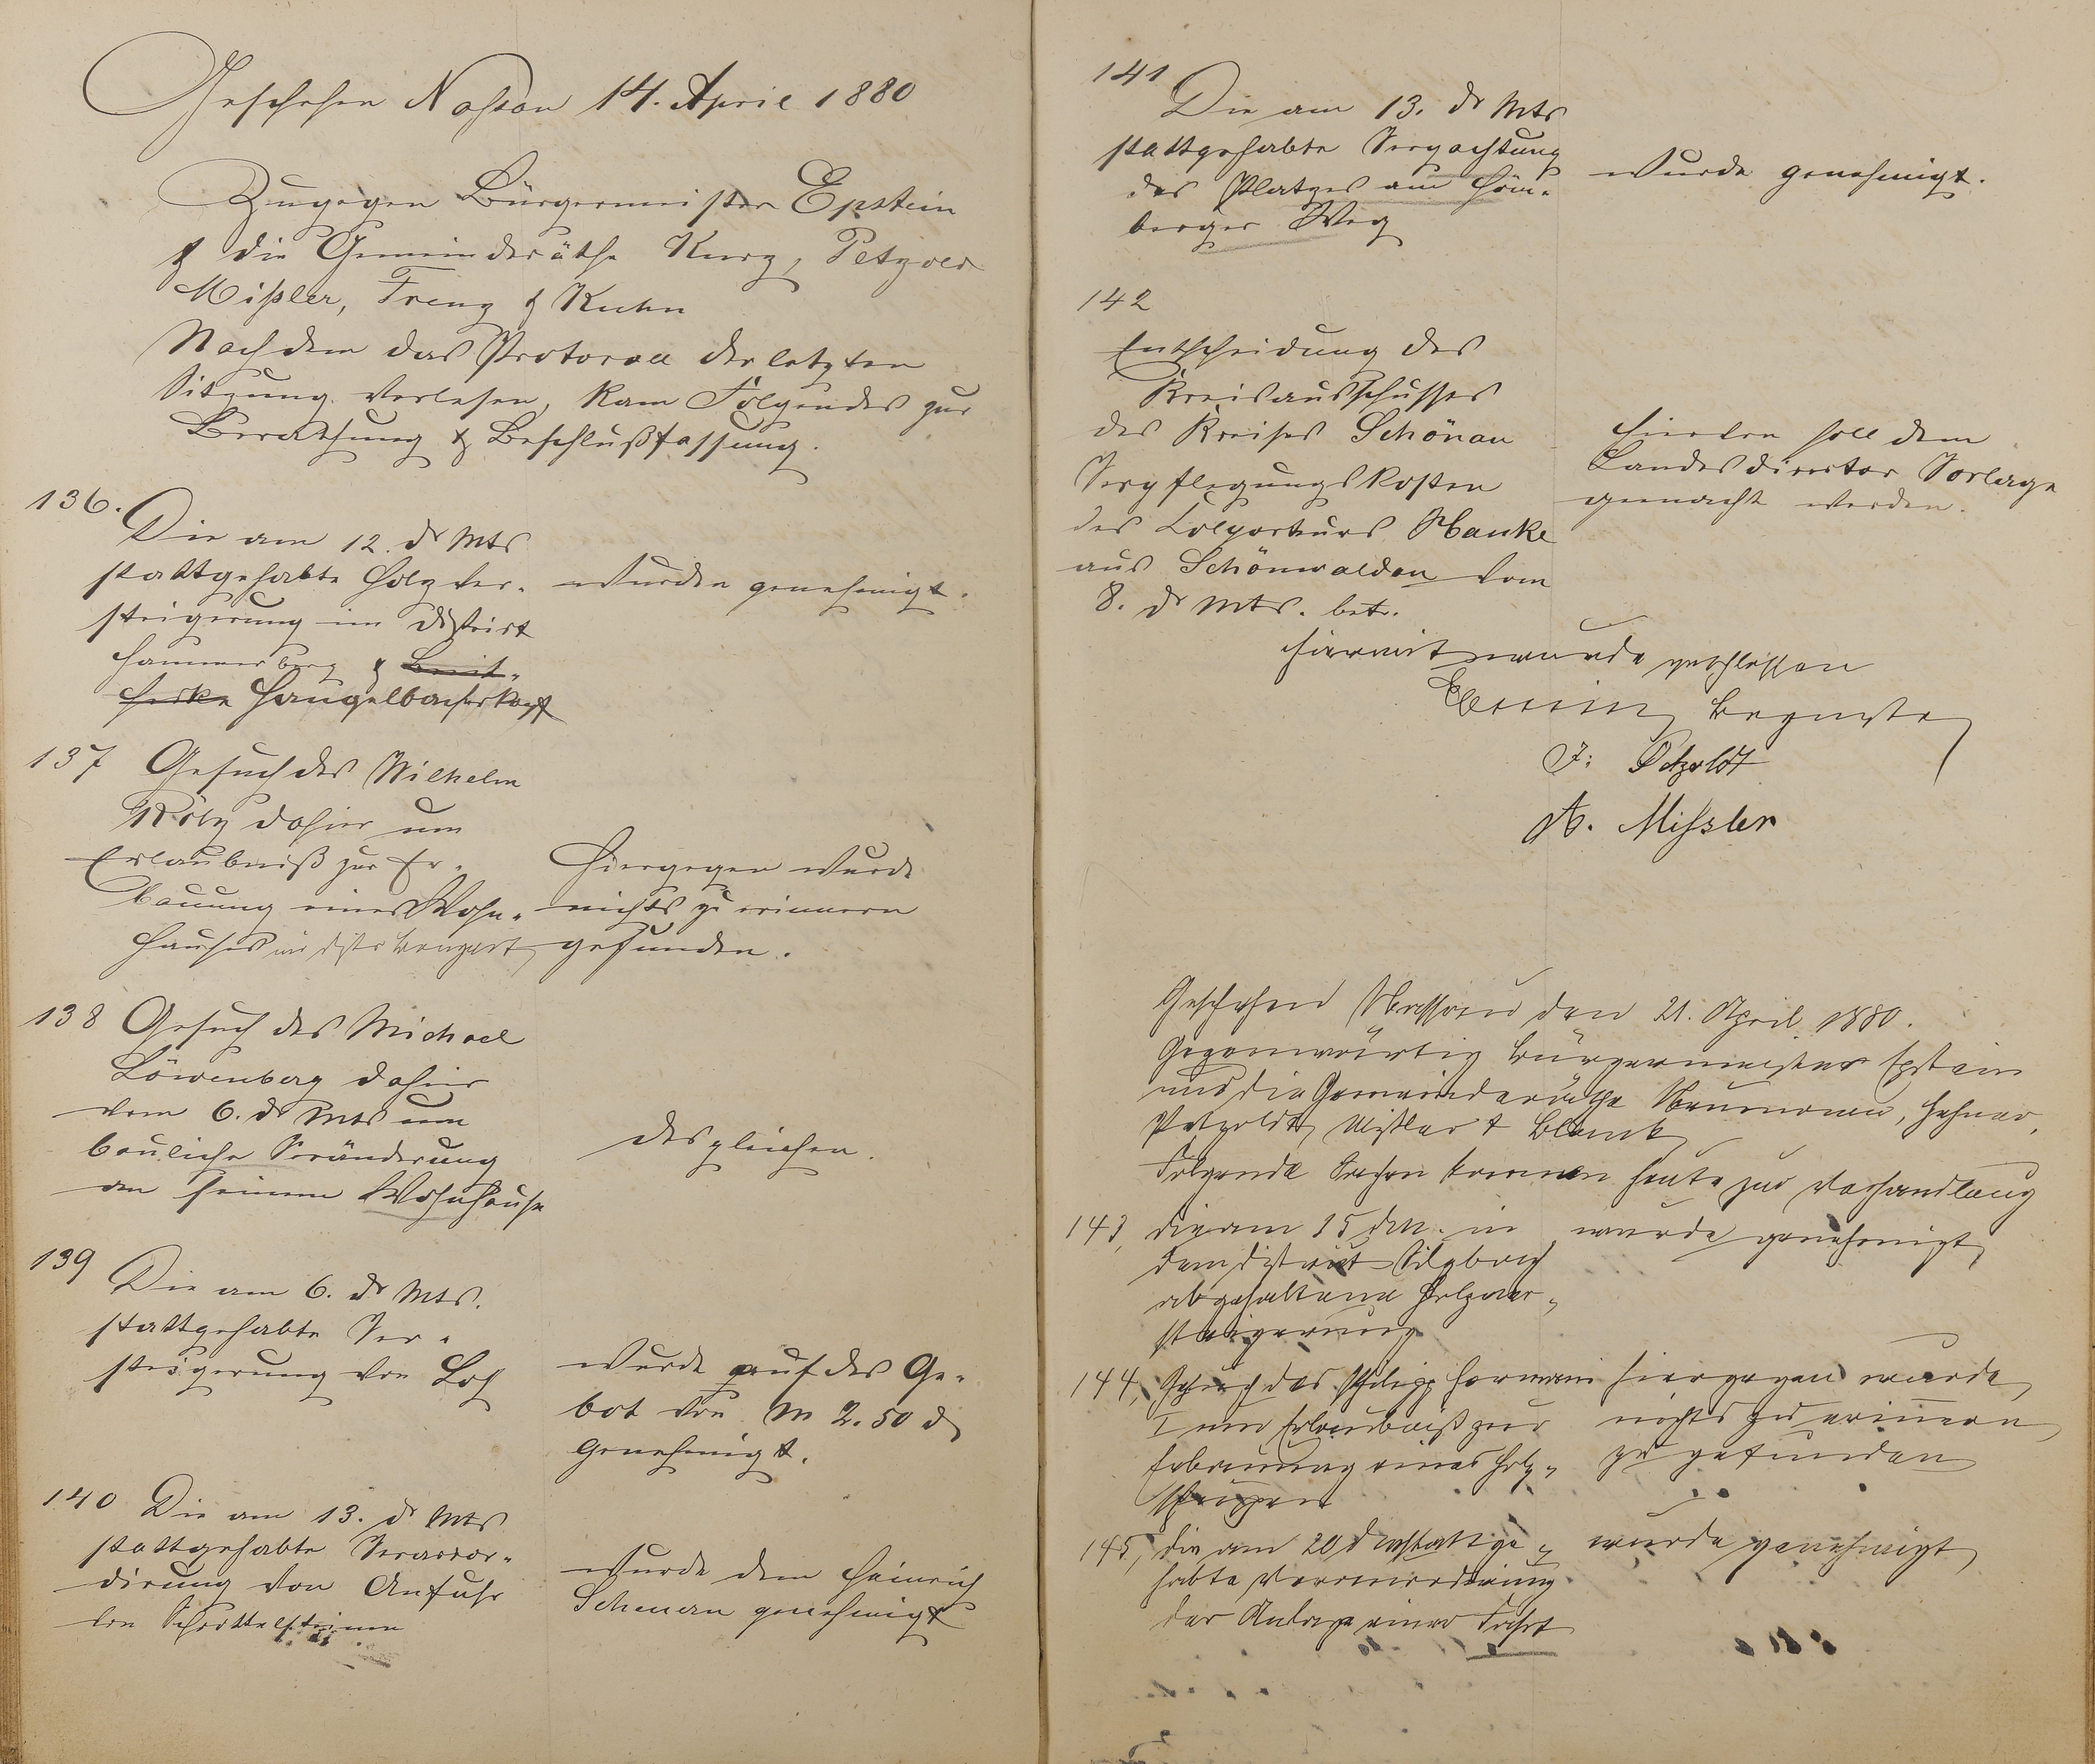 Geschehen Nassau 14. April 1880
Zugegen Bürgermeister Epstein
& die Gemeinderäthe Kurz, Petzold
Mißler, Trenz & Kuhn
Nachdem das Protocoll der letzten
Sitzung verlesen, kam Folgendes zur
Berathung & Beschlußfassung.
136.
Die am 12. ds Mts
stattgehabte Holzver-
steigerung im District
Hammerberg & Breit-
hecke Haugelbacherkopf
wurden genehmigt.
137 Gesuch des Wilhelm
dahier um
Erlaubniß zur Er-
bauung eines Wohn-
hauses im Distr
Hiergegen wurde
nichts zu erinnern
gefunden.
138 Gesuch des Michael
Löwenberg dahier
vom 6. ds Mts um
bauliche Veränderung
an seinem Wohnhause
desgleichen.
139
Die am 6. ds Mts.
stattgehabte Ver-
steigerung von Loh
wurde auf das Ge-
bot von M 2.50 d
genehmigt.
140 Die am 13. ds Mts
stattgehabte Veraccor-
dirung von Anfuhr
von
wurde dem Heinrich
Scheuern genehmigt
141
Die am 13. ds Mts
stattgehabte Verpachtung
des Platzes am Höm-
berger Weg
wurde genehmigt.
142
Entscheidung des
Kreisausschusses
des Kreises Schönau
Verpflegungskosten
des Colporteurs Hanke
aus Schönwaldau vom
8. ds Mts. betr.
Hiervon soll dem
Landesdirector Vorlage
gemacht werden.
Hiermit wurde geschlossen
Epstein Bgmstr
F: Petzoldt
A. Missler
Geschehen Nassau den 21. April 1880.
Gegenwärtig Bürgermeister Epstein
und die Gemeinderäthe
Petzoldt, Mißler & Blank
Folgende Sachen kommen heute zur Verhandlung
143, die am 15 d. M. in
dem District
abgehaltene Holzver-
steigerung
wurde genehmigt
144, Gesuch des Philipp Hermann
I um Erlaubniß zur
Erbauung eines Holz-
schuppen
hiergegen wurde
nichts zu erinnern
zu gefunden
145, die am 20 d M stattge-
habte Veraccordirung
der Anlage einer
wurde genehmigt